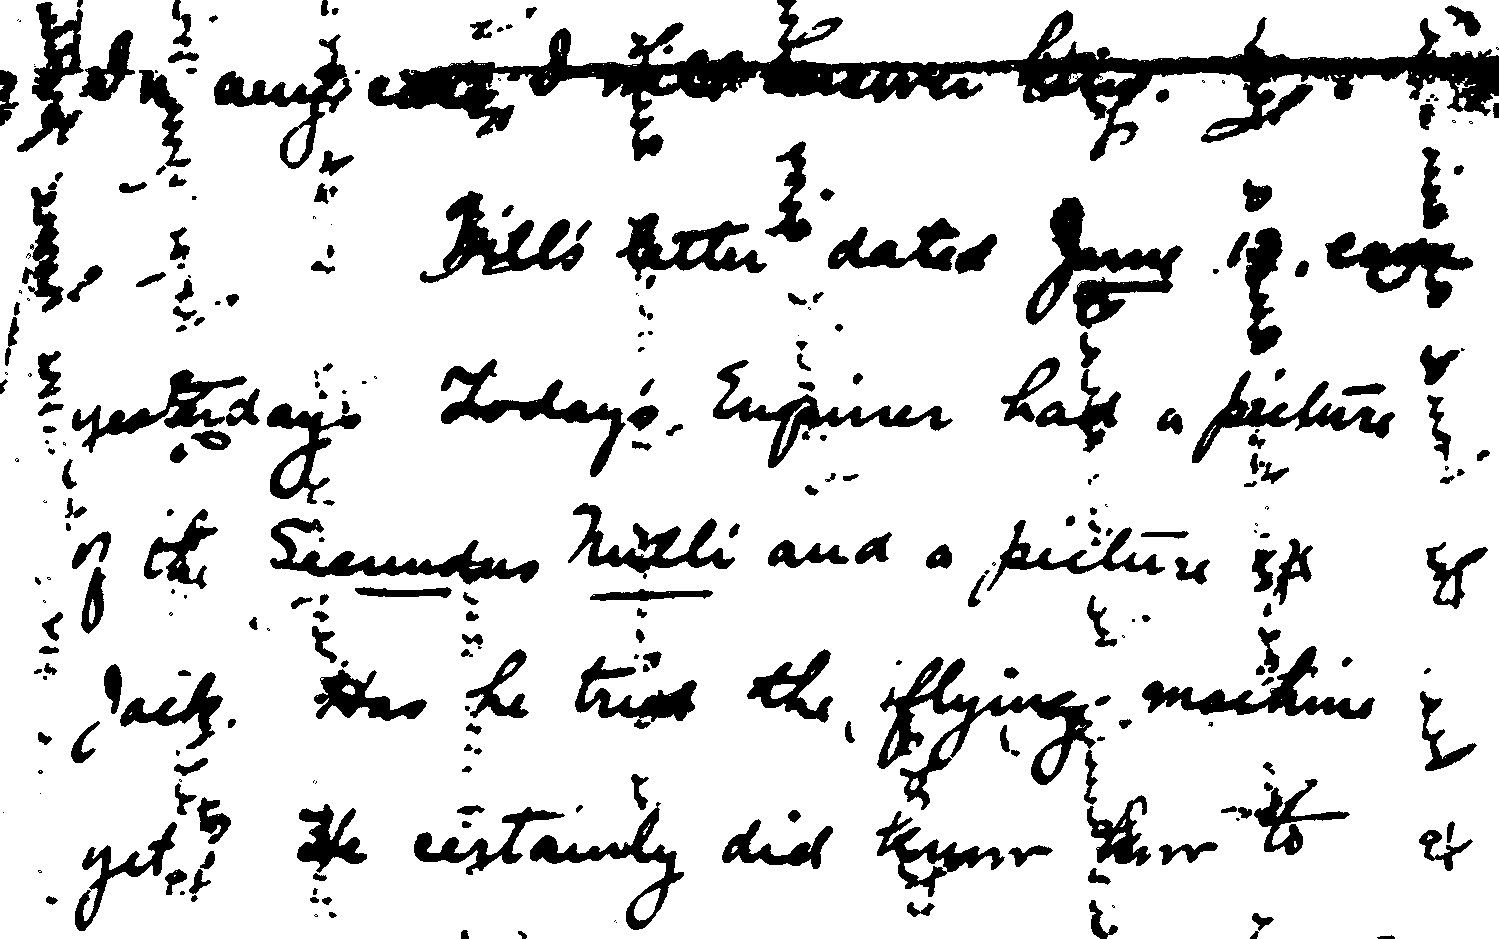 In any case I will answer her.
Bill's letter dated June 19. came
yesterday. Today's Enquirer had a picture
of the Secundus Nulli and a picture of
Jack. Has he tried the flying machine
yet. He certainly did know how to